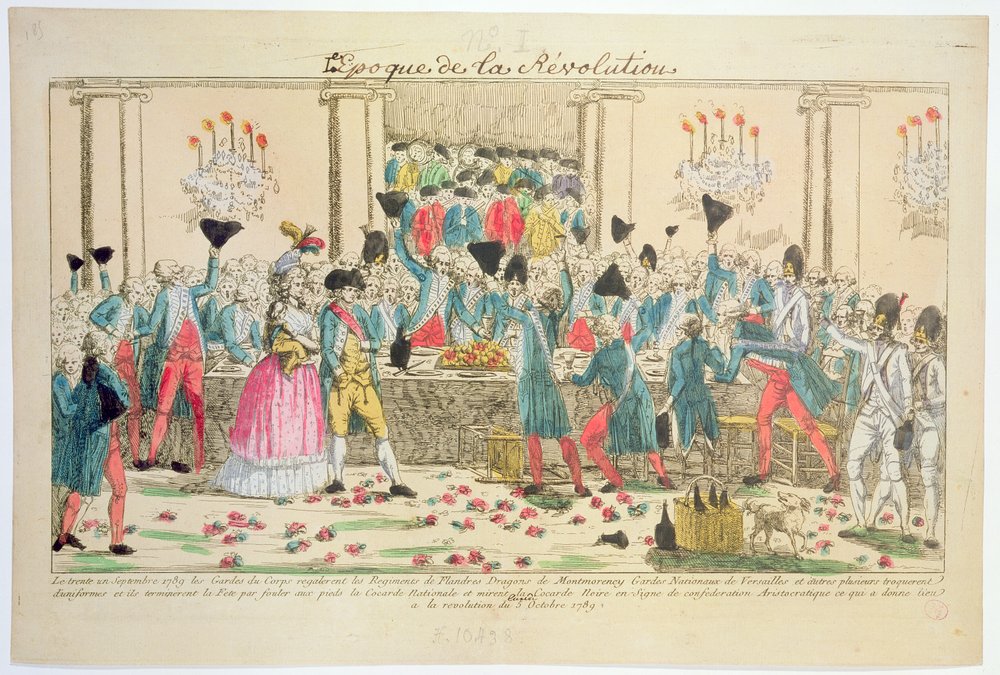 185
No. I.
L'Epoque de la Révolution
Le trente un Septembre 1789 les Gardes du Corps regalerent les Regiments de Flandres Dragons de Montmorency Gardes Nationaux de Versailles et dutres plusieurs troquerent
d'uniformes et ils terminerent la Fete par fouler aux pieds la Cocarde Nationale et mirent la Cocarde Noire en Signe de conféderation Aristocratique ce qui a donne lieu
a la revolution du 5 Octobre 1789